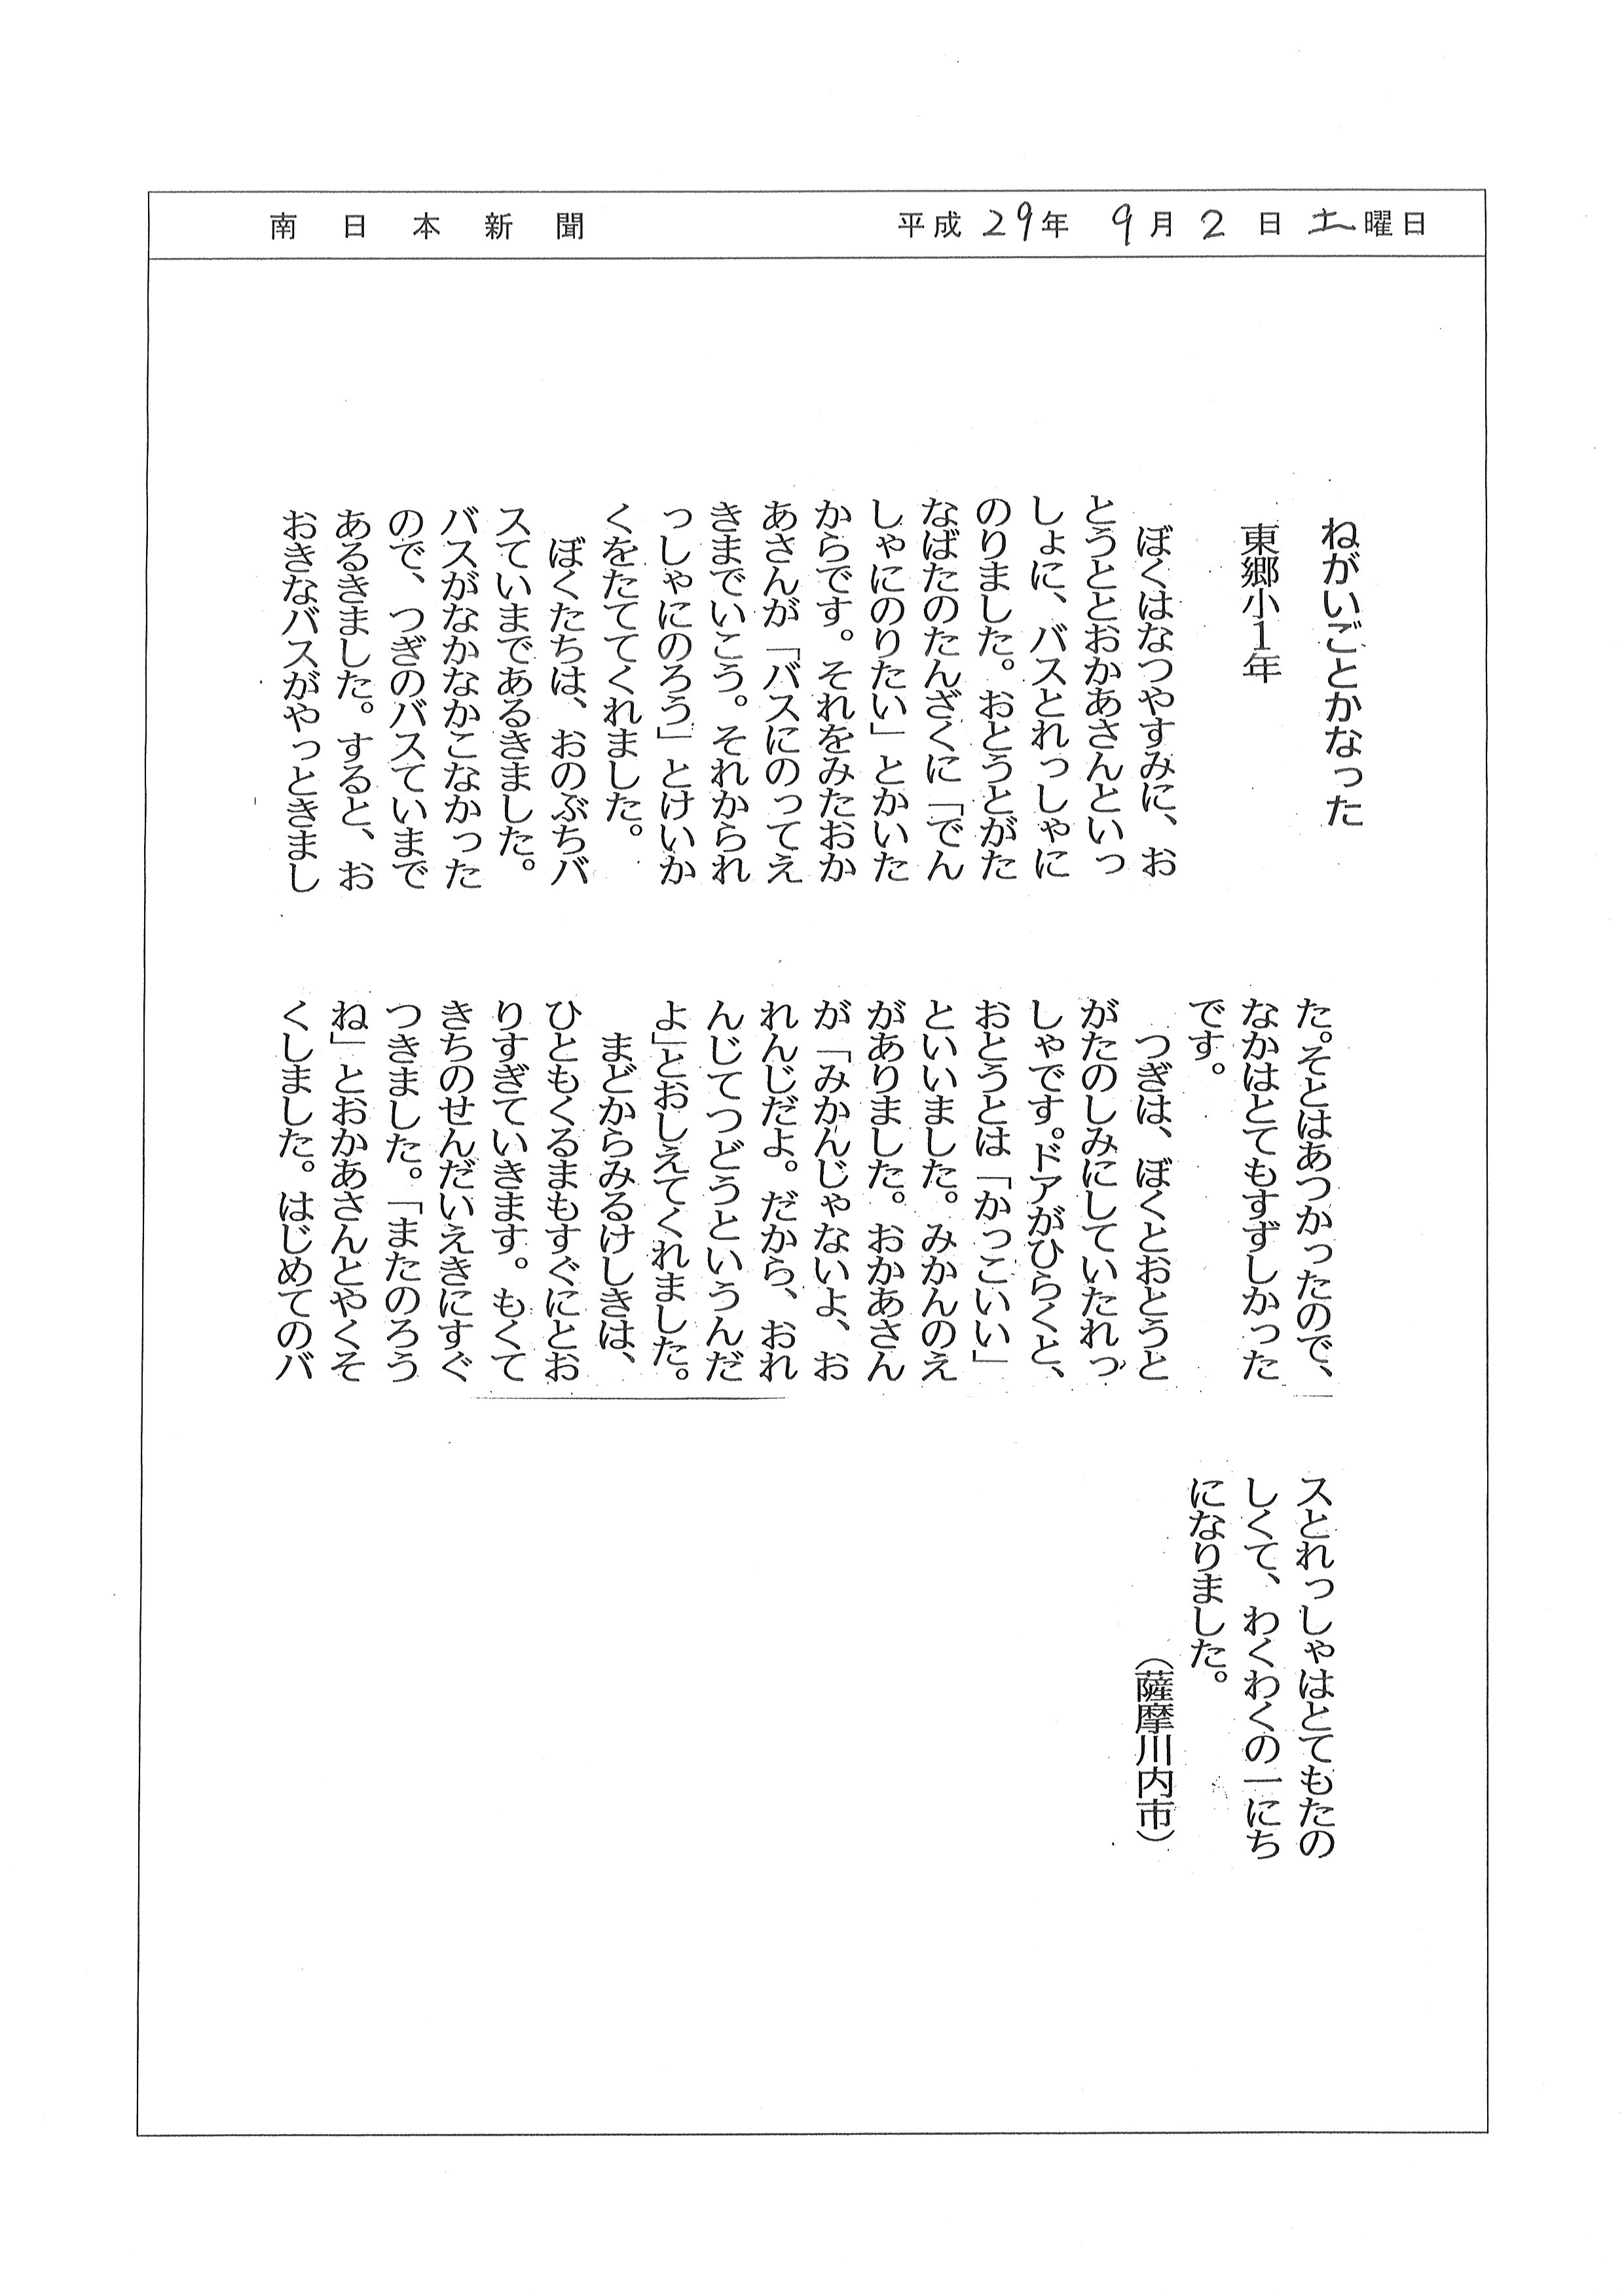 南日本新聞 平成29年 9月2日土曜日
ねがいごとかなった
東郷小1年
ぼくはなつやすみに、お
とうととおかあさんといっ
しょに、バスとれっしゃに
のりました。おとうとがた
なばたのたんざくに「でん
しゃにのりたい」とかいた
からです。それをみたおか
あさんが「バスにのってえ
きまでいこう。それかられ
っしゃにのろう」とけいか
くをたててくれました。
ぼくたちは、おのぶちバ
スていまであるきました。
バスがなかなかこなかった
ので、つぎのバスていまで
あるきました。すると、お
おきなバスがやっときまし
た。そとはあつかったので、
なかはとてもすずしかった
です。
つぎは、ぼくとおとうと
がたのしみにしていたれっ
しゃです。ドアがひらくと、
おとうとは「かっこいい」
といいました。みかんのえ
がありました。おかあさん
が「みかんじゃないよ、お
れんじだよ。だから、おれ
んじてつどうというんだ
よ」とおしえてくれました。
まどからみるけしきは、
ひともくるまもすぐにとお
りすぎていきます。もくて
きちのせんだいえきにすぐ
つきました。「またのろう
ね」とおかあさんとやくそ
くしました。はじめてのバ
スとれっしゃはとてもたの
しくて、わくわくの一にち
になりました。
（薩摩川内市）